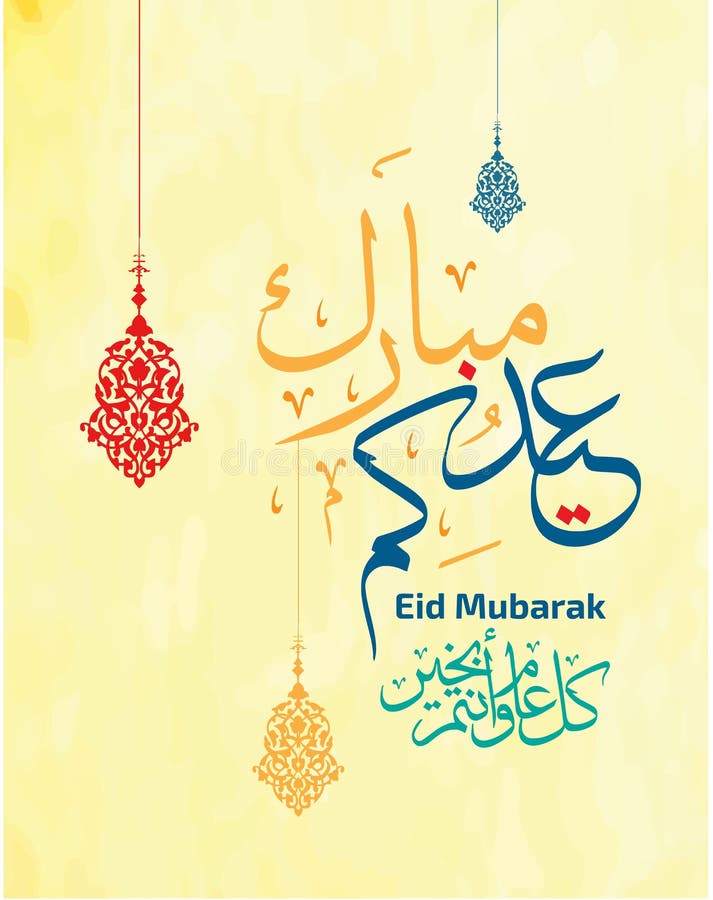 عيدكم
مبارك
Eid Mubarak
كل عام وأنتم بخير
dreamstime